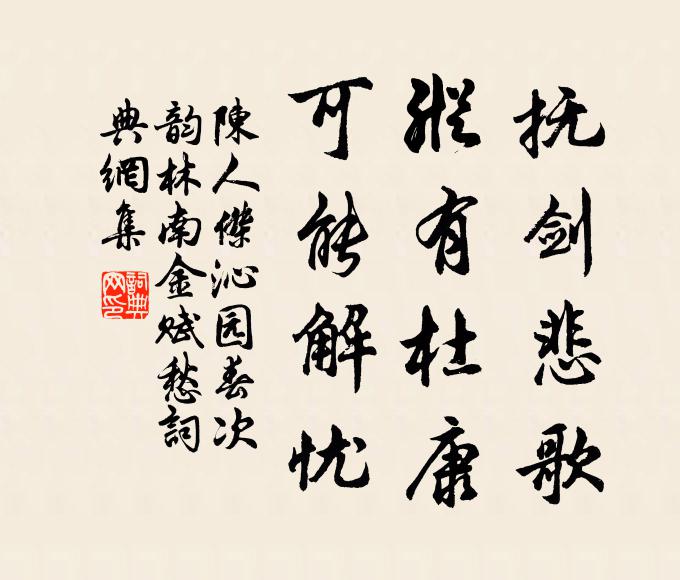 抚剑悲歌
纵有杜康
可能解忧
陳人傑沁园春次
韵林南金赋愁詞
典網集
詞典
网印